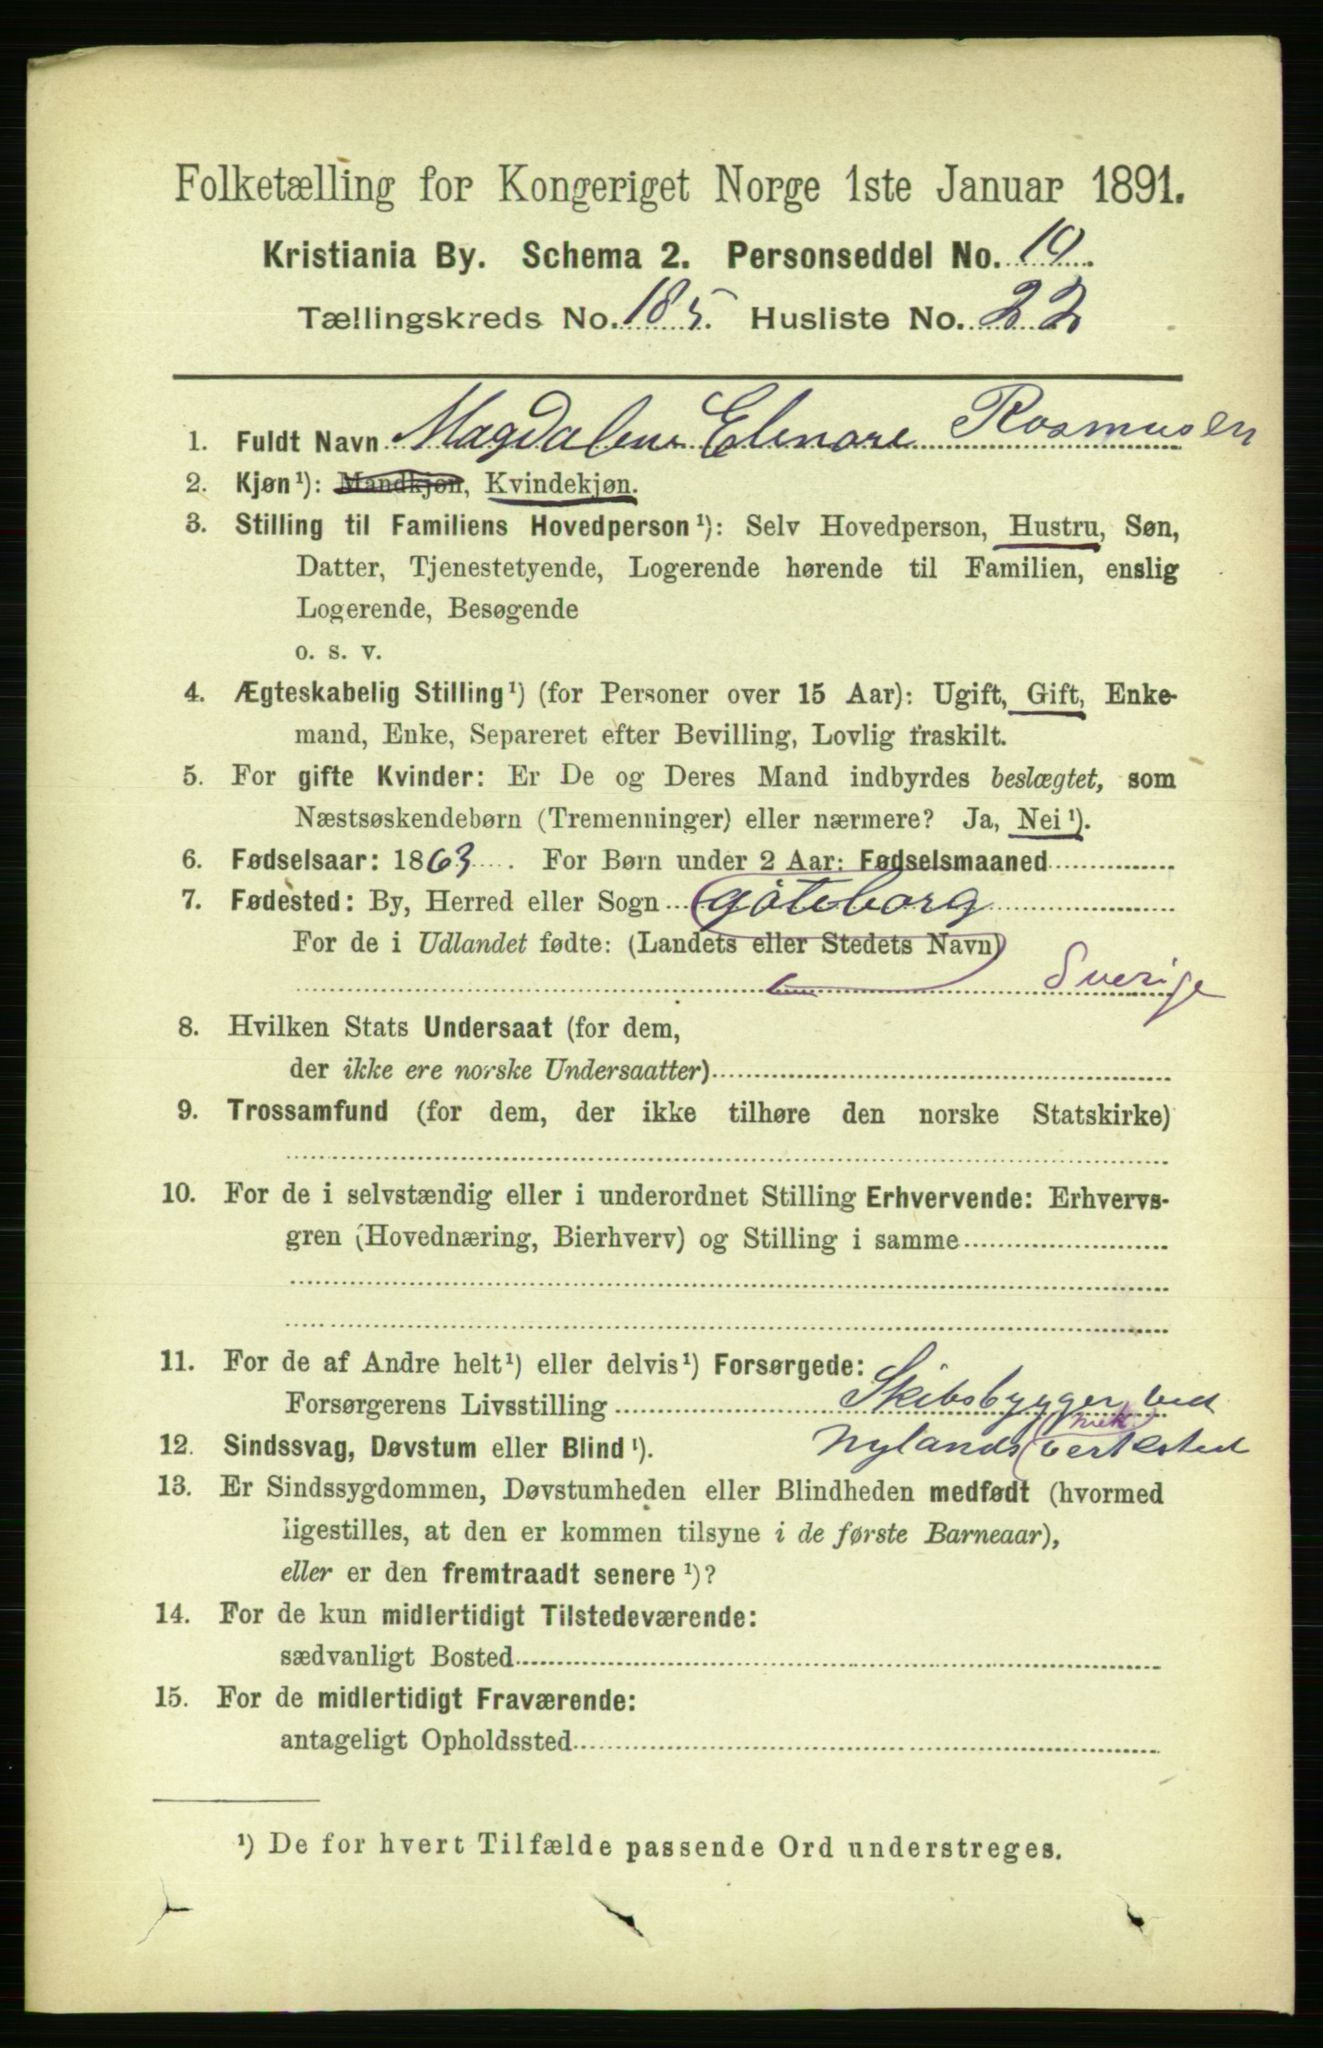 Folketælling for Kongeriget Norge 1ste Januar 1891.
Kristiania By. Schema 2. Personseddel No. 10.
Tællingskreds No. 185. Husliste No. 22
1. Fuldt Navn Magdalene Elenore Rosmusen
2. Kjøn¹): Mandkjøn, Kvindekjøn.
3. Stilling til Familiens Hovedperson¹): Selv Hovedperson, Hustru, Søn,
Datter, Tjenestetyende, Logerende hørende til Familien, enslig
Logerende, Besøgende
o. s. v.
4. Ægteskabelig Stilling¹) (for Personer over 15 Aar): Ugift, Gift, Enke-
mand, Enke, Separeret efter Bevilling, Lovlig fraskilt.
5. For gifte Kvinder: Er De og Deres Mand indbyrdes beslægtet, som
Næstsøskendebørn (Tremenninger) eller nærmere? Ja, Nei¹).
6. Fødselsaar: 1863. For Børn under 2 Aar: Fødselsmaaned
7. Fødested: By, Herred eller Sogn Göteborg
For de i Udlandet fødte: (Landets eller Stedets Navn)
Sverige
8. Hvilken Stats Undersaat (for dem,
der ikke ere norske Undersaatter)
9. Trossamfund (for dem, der ikke tilhøre den norske Statskirke)
10. For de i selvstændig eller i underordnet Stilling Erhvervende: Erhvervs-
gren (Hovednæring, Bierhverv) og Stilling i samme
11. For de af Andre helt¹) eller delvis¹) Forsørgede:
Forsørgerens Livsstilling Skibsbygger ved
12. Sindssvag, Døvstum eller Blind¹). Nylands mek verksted
13. Er Sindssygdommen, Døvstumheden eller Blindheden medfødt (hvormed
ligestilles, at den er kommen tilsyne i de første Barneaar),
eller er den fremtraadt senere¹)?
14. For de kun midlertidigt Tilstedeværende:
sædvanligt Bosted
15. For de midlertidigt Fraværende:
antageligt Opholdssted
¹) De for hvert Tilfælde passende Ord understreges.